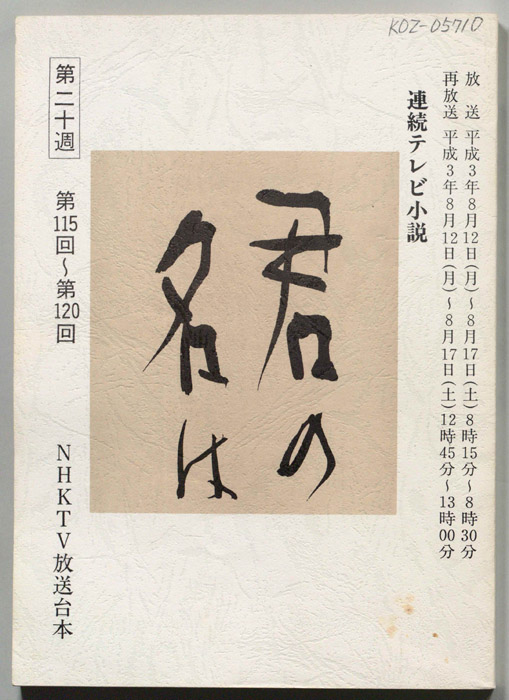 KOZ-05710
放　送　平成3年8月12日(月)～8月17日(土)8時15分～8時30分
再放送　平成3年8月12日(月)～8月17日(土)12時45分～13時00分
連続テレビ小説
君の
名は
第二十週
第115回～第120回
NHKTV放送台本